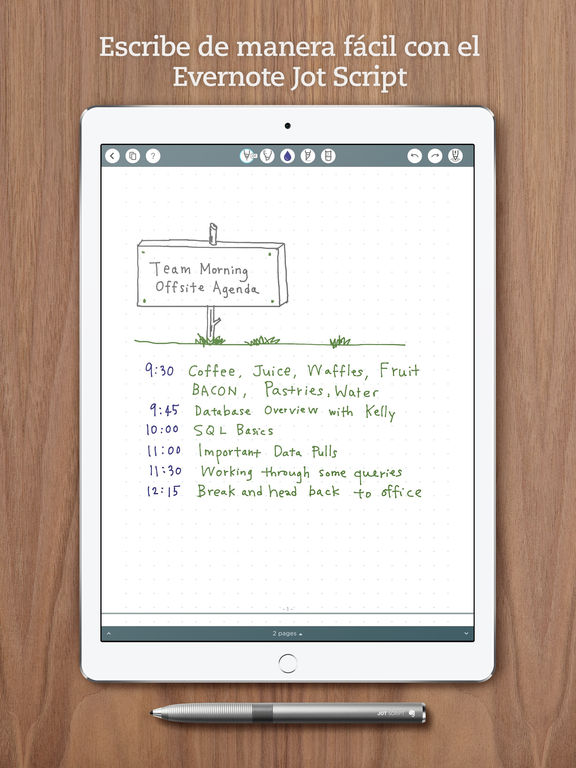 Escribe de manera fácil con el
Evernote Jot Script
?
Team Morning
Offsite Agenda
9:30 Coffee, Juice, Waffles, Fruit
BACON, Pastries, Water
9:45 Database Overview with Kelly
10:00 SQL Basics
11:00 Important Data Pulls
11:30 Working through some queries
12:15 Break and head back to office
- 1 -
2 pages
JOT SCRIPT